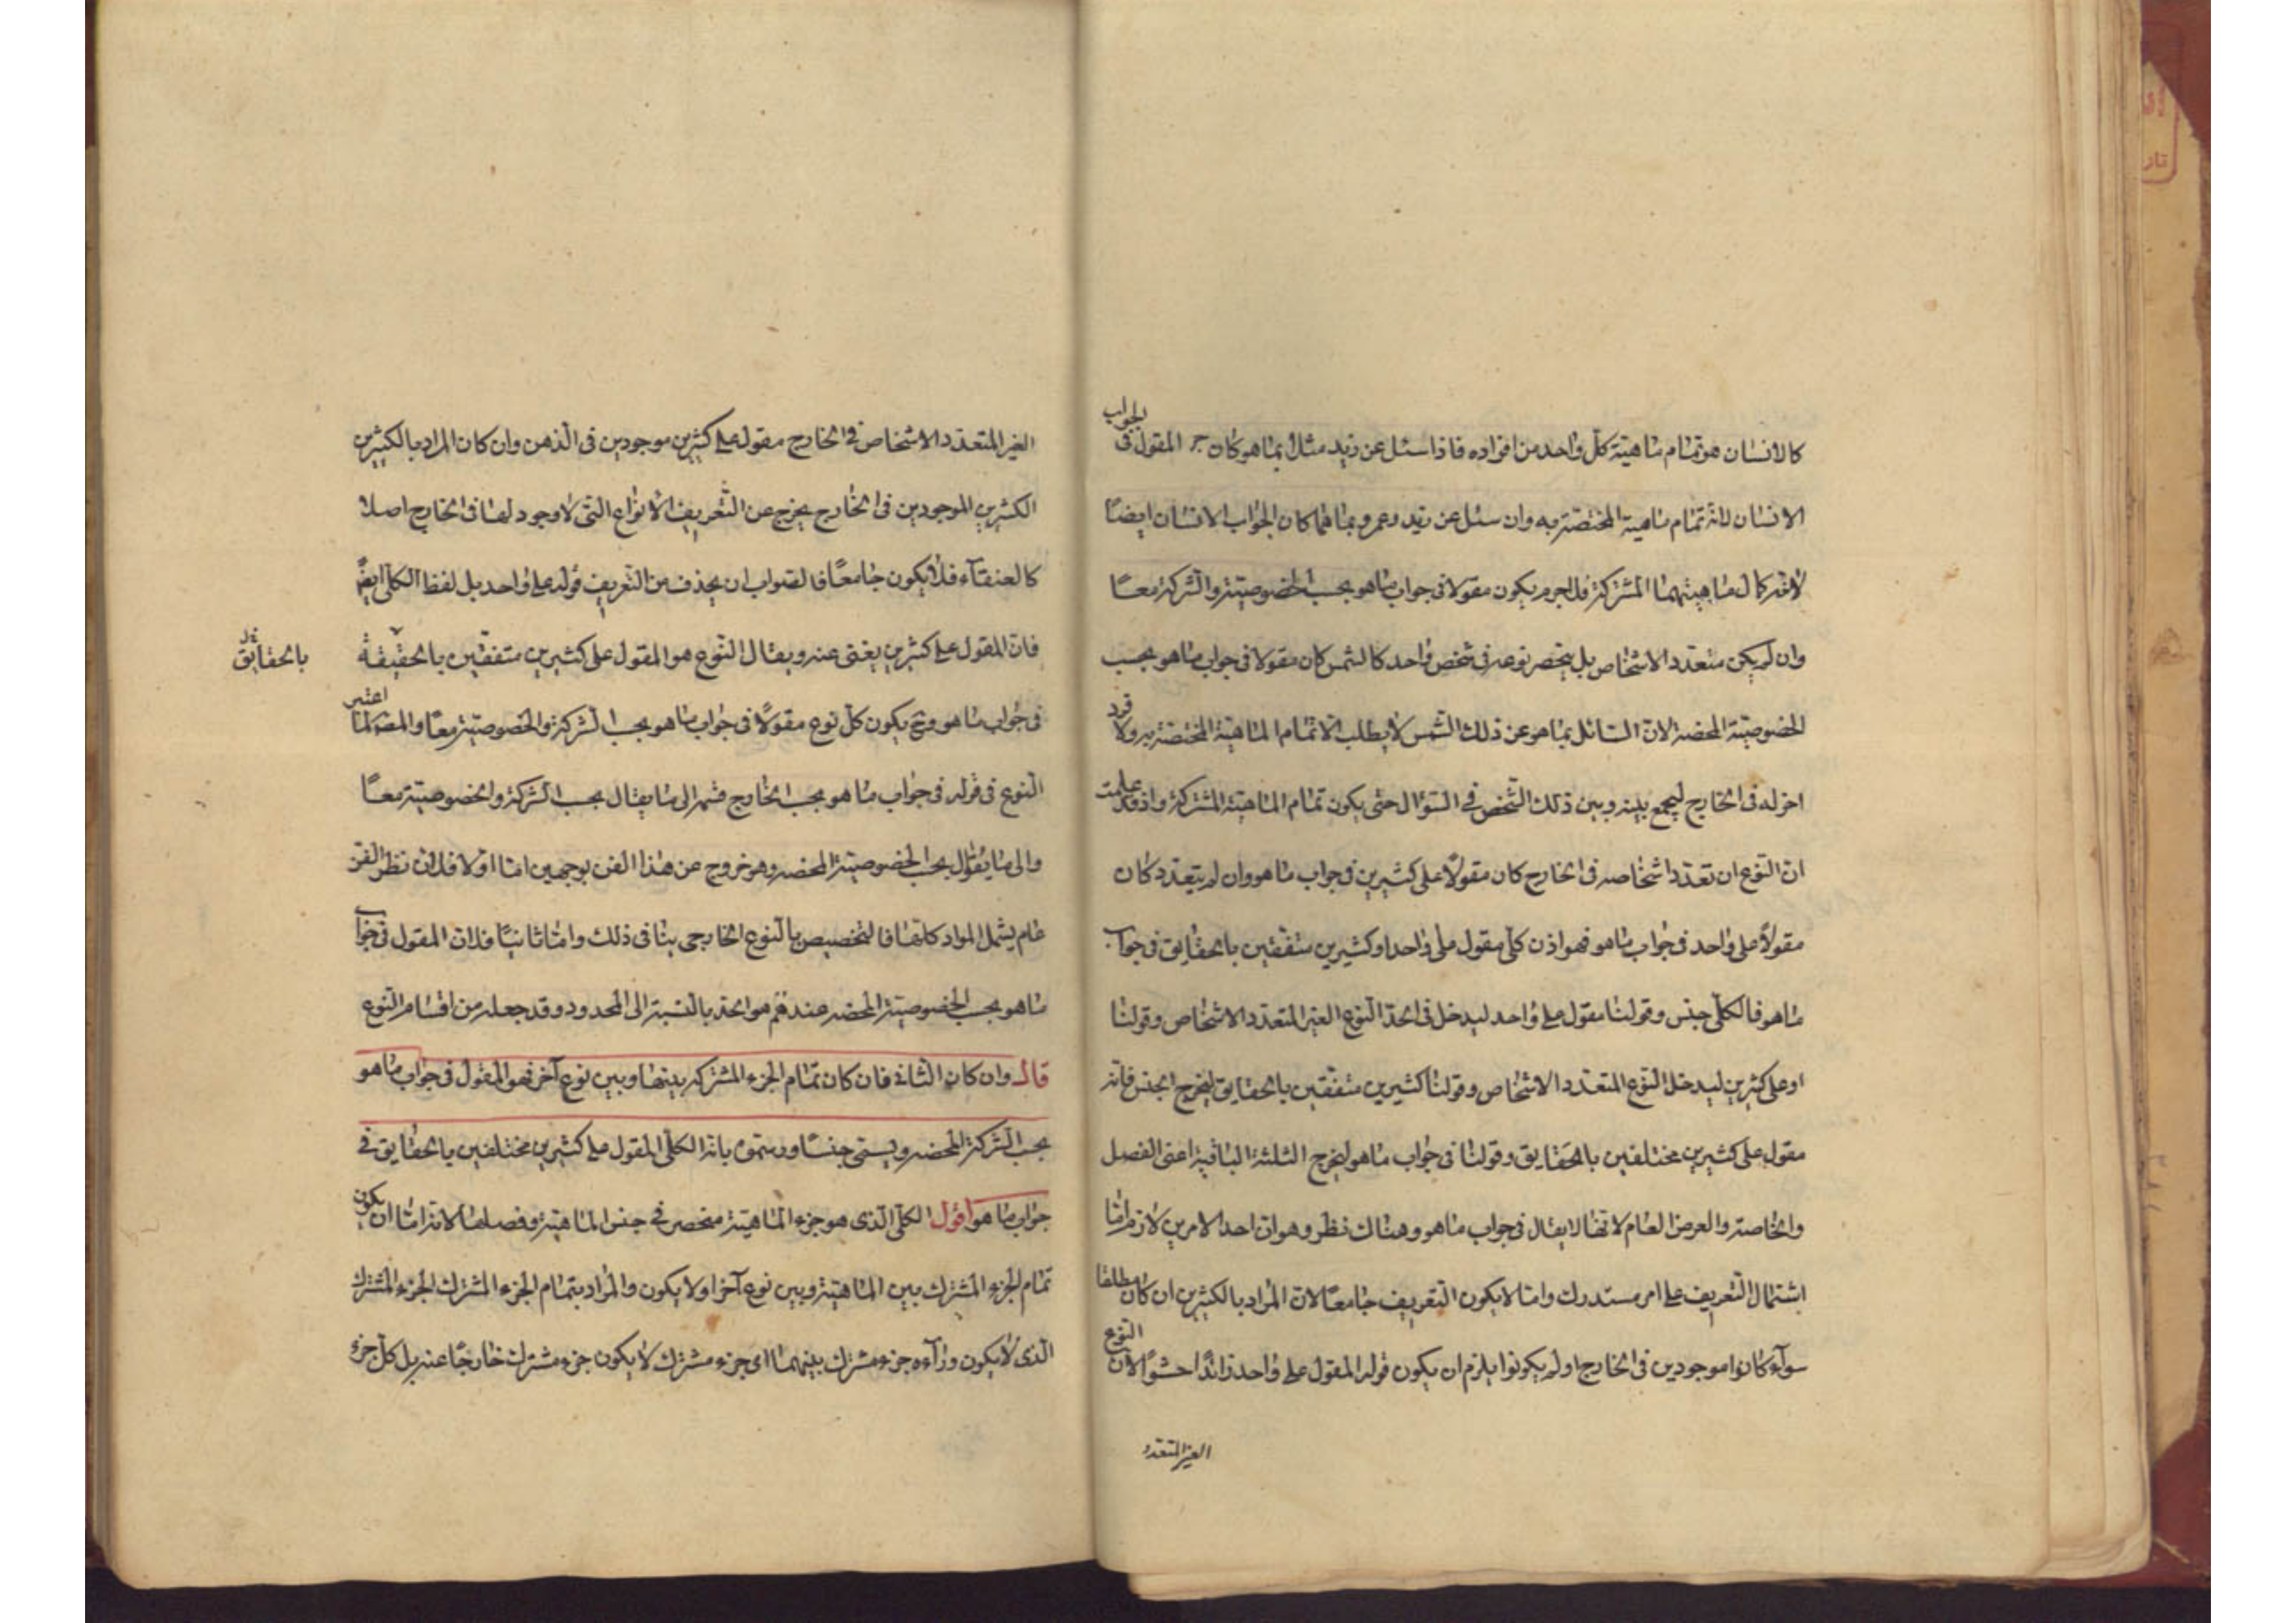 كالانسان هو تمام ماهيّة كلّ واحد من افراده فاذا سئل عن زيد مثلا بما هو كان ج المقول فى الجواب
الانسان لانّه تمام ماهية المختصّة به وان سئل عن زيد وعمرو بما هما كان الجواب الانسان ايضًا
لانّه كمال ماهيتهما المشتركة فلاجرم يكون مقولا فى جواب ما هو بحسب الخصوصيّة والشركة معًا
وان لم يكن متعدد الاشخاص بل ينحصر نوعه فى شخص واحد كالشمس كان مقولا فى جواب ما هو بحسب
الخصوصيّة المحضه لانّ السائل بما هو عن ذلك الشمس لا يطلب الّا تمام الماهيّة المختصّة به ولا فرد
اخر له فى الخارج ليجمع بينه وبين ذلك الشّخص فى السّؤال حتى يكون تمام الماهيّة المشتركة واذ قد علمت
انّ النّوع ان تعدّد اشخاصه فى الخارج كان مقولاً على كثيرين فى جواب ما هو وان لم يتعدّد كان
مقولاً على واحد فى جواب ما هو فهو اذن كلّى مقول على واحد او كثيرين متفقين بالحقايق فى جواب
ما هو فالكلّى جنس وقولنا مقول على واحد ليدخل فى الحدّ النّوع الغير المتعدّد الاشخاص وقولنا
او على كثيرين ليدخل النّوع المتعدّد الاشخاص وقولنا كثيرين متفّقين بالحقايق ليخرج الجنس فانّه
مقول على كثيرين مختلفين بالحقايق وقولنا فى جواب ما هو ليخرج الثلثة الباقية اعنى الفصل
والخاصة والعرض العام لانها لا يقال فى جواب ما هو وهناك نظر وهو انّ احد الامرين لازم امّا
اشتمال التّعريف على امر مستدرك وامّا لا يكون التّعريف جامعًا لانّ المراد بالكثيرين ان كان مطلقا
سوآء كانوا موجودين فى الخارج او لم يكونوا يلزم ان يكون قوله المقول على واحد زائدًا حشوًا لانّ النوع
الغير المتعدد
الغير المتعدّد الاشخاص فى الخارج مقول على كثيرين موجودين فى الذهن وان كان المراد بالكثيرين
الكثيرين الموجودين فى الخارج يخرج عن التّعريف الانواع التى لا وجود لها فى الخارج اصلا
كالعنقآء فلا يكون جامعًا فالصّواب ان يحذف من التّعريف قوله على واحد بل لفظ الكلّى ايضً
فانّ المقول على كثيرين يغنى عنه ويقال النّوع هو المقول على كثيرين متفقّين بالحقيقة
بالحقائق
فى جواب ما هو وح يكون كلّ نوع مقولاً فى جواب ما هو بحسب الشركة والخصوصيّة معًا والمص لما اعتبر
النّوع فى قوله فى جواب ما هو بحسب الخارج قسمه الى ما يقال بحسب الشّركة والخصوصيّة معًا
والى ما يقال بحسب الخصوصيّة المحضه وهو خروج عن هذا الفن بوجهين امّا اوّلا فلانّ نظر الفنّ
عام يشمل المواد كلّها فالتخصيص بالنّوع الخارجى ينافى ذلك وامّا ثانيًا فلانّ المقول فى جواب
ما هو بحسب الخصوصيّة المحضه عندهم هو الحدّ بالنّسبة الى المحدود وقد جعله من اقسام النّوع
قال وان كان الثانى فان كان تمام الجزء المشترك بينها وبين نوع آخر فهو المقول فى جواب ما هو
بحسب الشّركة المحضه ويسمّى جنسًا ورسموه بانّه الكلّى المقول على كثيرين مختلفين بالحقايق فى
جواب ما هو اقول الكلّى الّذى هو جزء الماهيّة منحصر فى جنس الماهيّة وفصلها لانّه امّا ان يكون
تمام الجزء المشترك بين الماهيّة وبين نوع آخر او لا يكون والمراد بتمام الجزء المشترك الجزء المشترك
الّذى لا يكون ورآءه جزء مشترك بينهما اى جزء مشترك لا يكون جزء مشترك خارجًا عنه بل كلّ جزء